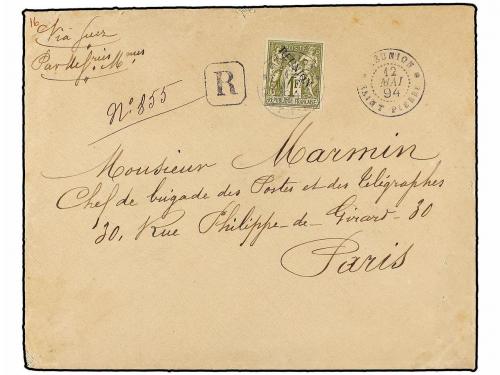 16
Via Suez
Par
Nº 855
R
RÉUNION
1F
REPUBLIQUE FRANÇAISE
RÉUNION
12
MAI
94
SAINT PIERRE
Monsieur Marmin
Chef de brigade des Postes et des télégraphes
30, Rue Philippe-de-Girard-30
Paris